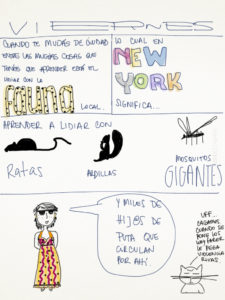 VIERNES
CUANDO TE MUDAS DE CIUDAD
ENTRE LAS MUCHAS COSAS QUE
TENÉS QUE APRENDER ESTÁ EL
LIDIAR CON LA
fauna
LOCAL.
LO CUAL EN
NEW
YORK
SIGNIFICA...
APRENDER A LIDIAR CON
Ratas
ARDILLAS
MOSQUITOS
GIGANTES
Y MILES DE
HIJ@S DE
PUTA QUE
CIRCULAN
POR AHÍ.
UFF...
CAGAMOS.
CUANDO SE
PONE LOS
LE PEGA
VIOLENCIA